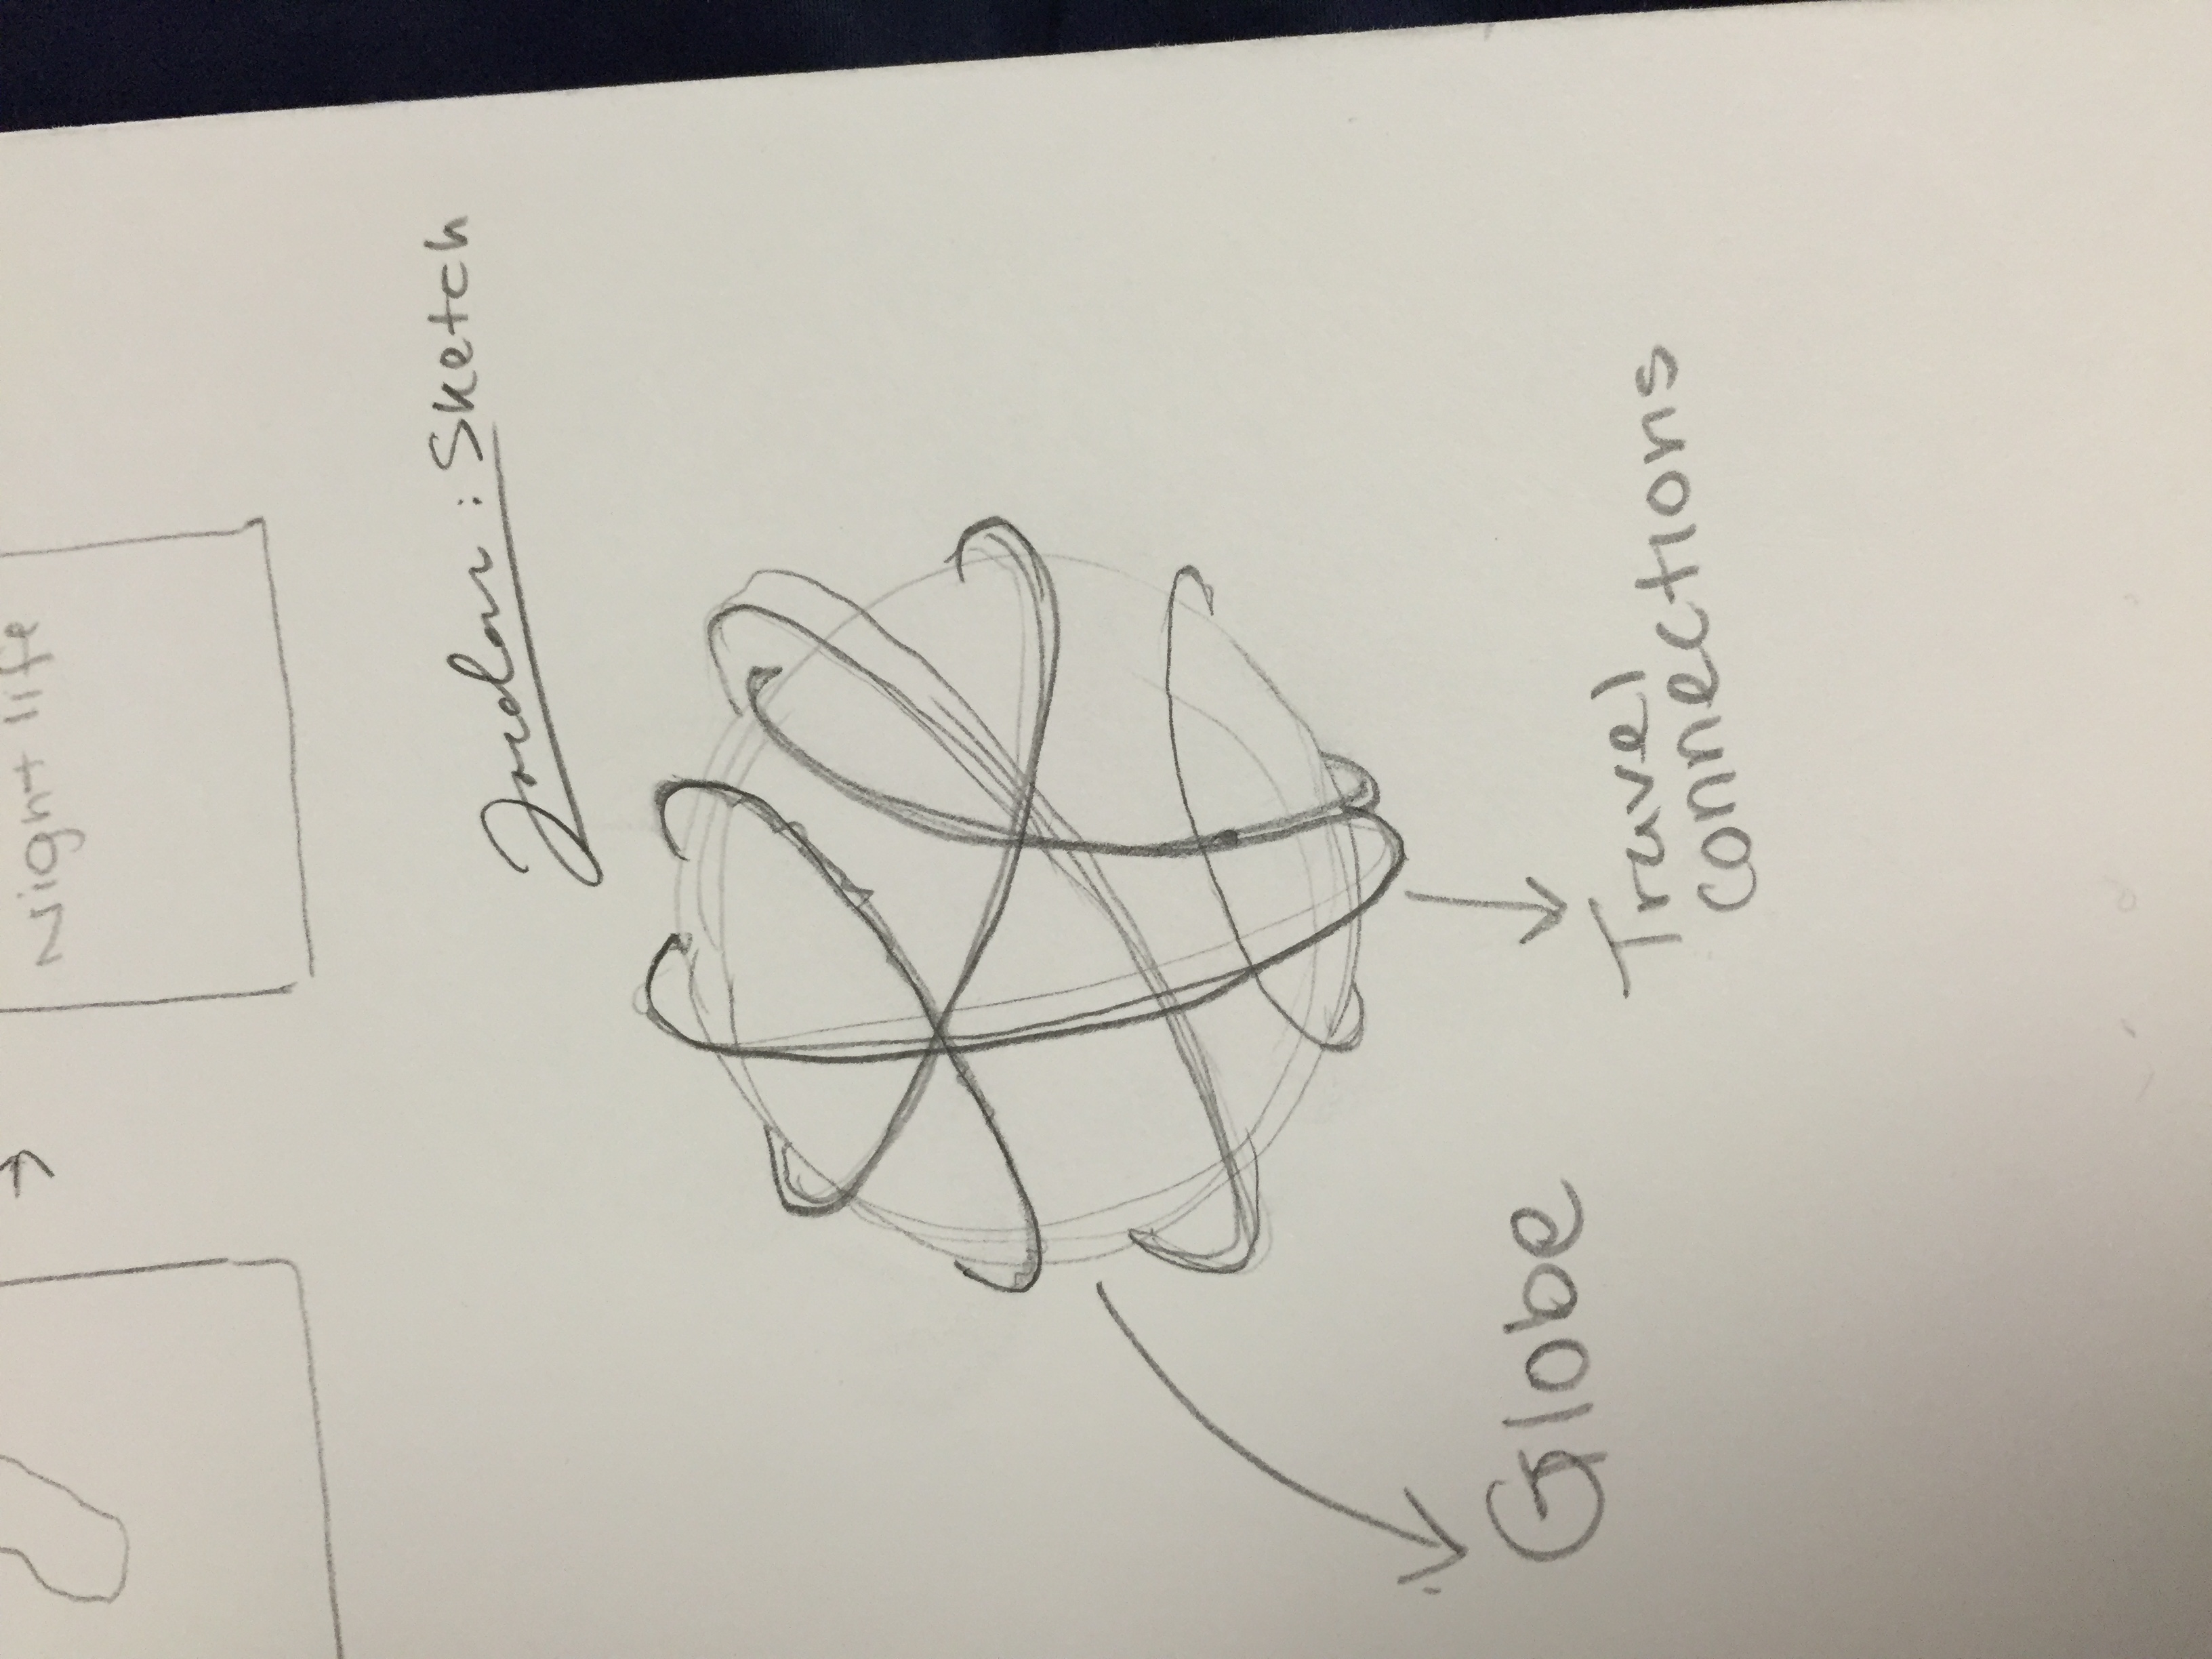 Night life
Jordan : Sketch
Globe
Travel
connections